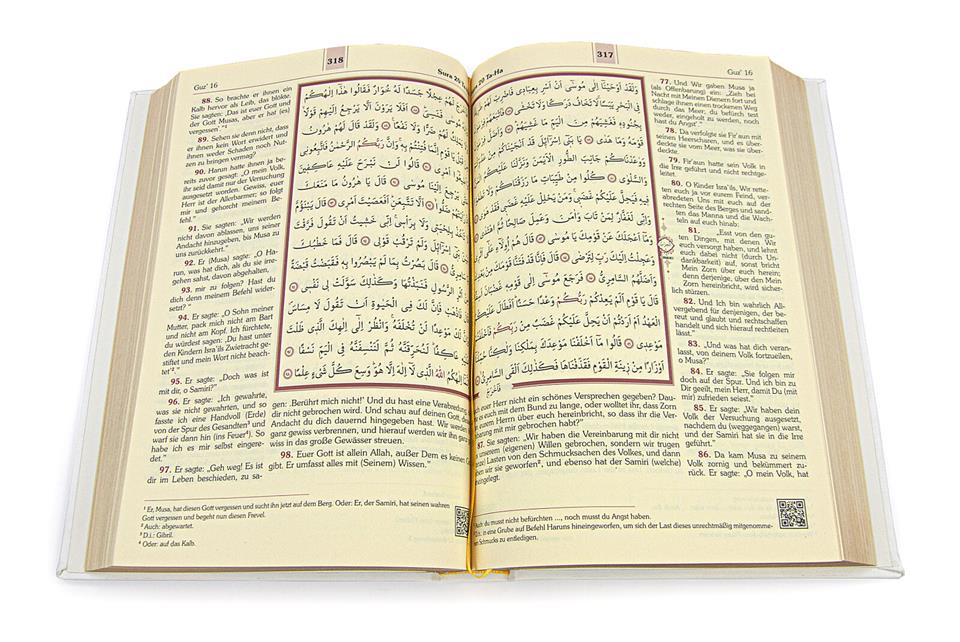 317
20 Ta-Ha
Guz' 16
وَلَقَدْ أَوْحَيْنَا إِلَى مُوسَى أَنْ أَسْرِ بِعِبَادِي فَاضْرِبْ لَهُمْ
فِي الْبَحْرِ يَبَسًا لَا تَخَافُ دَرَكًا وَلَا تَخْشَى
بِجُنُودِهِ فَغَشِيَهُمْ مِنَ الْيَمِّ مَا غَشِيَهُمْ
قَوْمَهُ وَمَا هَدَى يَا بَنِي إِسْرَائِيلَ قَدْ أَنْجَيْنَاكُمْ
وَوَاعَدْنَاكُمْ جَانِبَ الطُّورِ الْأَيْمَنَ وَنَزَّلْنَا عَلَيْكُمُ
وَالسَّلْوَى كُلُوا مِنْ طَيِّبَاتِ مَا رَزَقْنَاكُمْ وَلَا
فِيهِ فَيَحِلَّ عَلَيْكُمْ غَضَبِي وَمَنْ يَحْلِلْ عَلَيْهِ غَضَبِي
وَإِنِّي لَغَفَّارٌ لِمَنْ تَابَ وَآمَنَ وَعَمِلَ صَالِحًا ثُمَّ
وَمَا أَعْجَلَكَ عَنْ قَوْمِكَ يَا مُوسَى قَالَ هُمْ أُولَاءِ عَلَى
وَعَجِلْتُ إِلَيْكَ رَبِّ لِتَرْضَى قَالَ فَإِنَّا قَدْ فَتَنَّا قَوْمَكَ
وَأَضَلَّهُمُ السَّامِرِيُّ فَرَجَعَ مُوسَى إِلَى قَوْمِهِ غَضْبَانَ
قَالَ يَا قَوْمِ أَلَمْ يَعِدْكُمْ رَبُّكُمْ وَعْدًا حَسَنًا أَفَطَالَ عَلَيْكُمُ
الْعَهْدُ أَمْ أَرَدْتُمْ أَنْ يَحِلَّ عَلَيْكُمْ غَضَبٌ مِنْ رَبِّكُمْ
مَوْعِدِي قَالُوا مَا أَخْلَفْنَا مَوْعِدَكَ بِمَلْكِنَا وَلَكِنَّا
أَوْزَارًا مِنْ زِينَةِ الْقَوْمِ فَقَذَفْنَاهَا فَكَذَلِكَ أَلْقَى السَّامِرِيُّ
77. Und Wir gaben Musa ja
(als Offenbarung) ein: „Zieh bei
Nacht mit Meinen Dienern fort und
schlage ihnen einen trockenen Weg
durch das Meer; du befürch test
weder, eingeholt zu werden, noch
hast du Angst¹.“
78. Da verfolgte sie Fir'aun mit
seinen Heerscharen, und es über-
deckte sie vom Meer, was sie über-
deckte.
79. Fir'aun hatte sein Volk in
die Irre geführt und nicht rechtge-
leitet.
80. O Kinder Isra'ils, Wir rette-
ten euch ja vor eurem Feind, ver-
abredeten Uns mit euch auf der
rechten Seite des Berges und sand-
ten das Manna und die Wach-
teln auf euch hinab:
81. „Esst von den gu-
ten Dingen, mit denen Wir
euch versorgt haben, und lehnt
euch dabei nicht (durch Un-
dankbarkeit) auf, sonst bricht
Mein Zorn über euch herein;
denn derjenige, über den Mein
Zorn hereinbricht, wird sicher-
lich stürzen.
82. Und Ich bin wahrlich All-
vergebend für denjenigen, der be-
reut und glaubt und rechtschaffen
handelt und sich hierauf rechtleiten
lässt.“
83. „Und was hat dich veran-
lasst, von deinem Volk fortzueilen,
o Musa?“
84. Er sagte: „Sie folgen mir
doch auf der Spur. Und ich bin zu
Dir geeilt, mein Herr, damit Du (mit
mir) zufrieden seiest.“
85. Er sagte: „Wir haben dein
Volk der Versuchung ausgesetzt,
nachdem du (weggegangen) warst,
und der Samiri hat sie in die Irre
geführt.“
86. Da kam Musa zu seinem
Volk zornig und bekümmert zu-
rück. Er sagte: „O mein Volk, hat
euch euer Herr nicht ein schönes Versprechen gegeben? Dau-
es euch mit dem Bund zu lange, oder wolltet ihr, dass Zorn
euerem Herrn über euch hereinbricht, so dass ihr die Ver-
barung mit mir gebrochen habt?“
87. Sie sagten: „Wir haben die Vereinbarung mit dir nicht
unserem (eigenen) Willen gebrochen, sondern wir trugen
Lasten von den Schmucksachen des Volkes, und dann
wir sie geworfen², und ebenso hat der Samiri (welche)
eingelegt.
Auch du musst nicht befürchten ..., noch musst du Angst haben.
D.h.: in eine Grube auf Befehl Haruns hineingeworfen, um sich der Last dieses unrechtmäßig mitgenomme-
nen Schmucks zu entledigen.
318
Sura 20
Guz' 16
لَهُمْ عِجْلًا جَسَدًا لَهُ خُوَارٌ فَقَالُوا هَذَا إِلَهُكُمْ
فَنَسِيَ أَفَلَا يَرَوْنَ أَلَّا يَرْجِعُ إِلَيْهِمْ قَوْلًا
لَهُمْ ضَرًّا وَلَا نَفْعًا وَلَقَدْ قَالَ لَهُمْ هَارُونُ
يَا قَوْمِ إِنَّمَا فُتِنْتُمْ بِهِ وَإِنَّ رَبَّكُمُ الرَّحْمَنُ فَاتَّبِعُونِي
أَمْرِي قَالُوا لَنْ نَبْرَحَ عَلَيْهِ عَاكِفِينَ
يَرْجِعَ إِلَيْنَا مُوسَى قَالَ يَا هَارُونُ مَا مَنَعَكَ
ضَلُّوا أَلَّا تَتَّبِعَنِ أَفَعَصَيْتَ أَمْرِي قَالَ يَبْنَؤُمَّ
بِلِحْيَتِي وَلَا بِرَأْسِي إِنِّي خَشِيتُ أَنْ تَقُولَ فَرَّقْتَ
بَنِي إِسْرَائِيلَ وَلَمْ تَرْقُبْ قَوْلِي قَالَ فَمَا خَطْبُكَ
قَالَ بَصُرْتُ بِمَا لَمْ يَبْصُرُوا بِهِ فَقَبَضْتُ قَبْضَةً
الرَّسُولِ فَنَبَذْتُهَا وَكَذَلِكَ سَوَّلَتْ لِي نَفْسِي
فَاذْهَبْ فَإِنَّ لَكَ فِي الْحَيَاةِ أَنْ تَقُولَ لَا مِسَاسَ
لَكَ مَوْعِدًا لَنْ تُخْلَفَهُ وَانْظُرْ إِلَى إِلَهِكَ الَّذِي ظَلْتَ
عَاكِفًا لَنُحَرِّقَنَّهُ ثُمَّ لَنَنْسِفَنَّهُ فِي الْيَمِّ نَسْفًا
إِلَهُكُمُ اللَّهُ الَّذِي لَا إِلَهَ إِلَّا هُوَ وَسِعَ كُلَّ شَيْءٍ عِلْمًا
88. So brachte er ihnen ein
Kalb hervor als Leib, das blökte.
Sie sagten: ‚Das ist euer Gott und
der Gott Musas, aber er hat (es)
vergessen.¹“
89. Sehen sie denn nicht, dass
er ihnen kein Wort erwidert und
ihnen weder Schaden noch Nut-
zen zu bringen vermag?
90. Harun hatte ihnen ja be-
reits zuvor gesagt: „O mein Volk,
ihr seid damit nur der Versuchung
ausgesetzt worden. Gewiss, euer
Herr ist der Allerbarmer; so folgt
mir und gehorcht meinem Be-
fehl.“
91. Sie sagten: „Wir werden
nicht davon ablassen, uns seiner
Andacht hinzugeben, bis Musa zu
uns zurückkehrt.“
92. Er (Musa) sagte: „O Ha-
run, was hat dich, als du sie irre-
gehen sahst, davon abgehalten,
93. mir zu folgen? Hast du
dich denn meinem Befehl wider-
setzt?“
94. Er sagte: „O Sohn meiner
Mutter, pack mich nicht am Bart
und nicht am Kopf. Ich fürchtete,
du würdest sagen: ‚Du hast unter
den Kindern Isra'ils Zwietracht ge-
stiftet und mein Wort nicht beach-
tet‘².“
95. Er sagte: „Doch was ist
mit dir, o Samiri?“
96. Er sagte: „Ich gewahrte,
was sie nicht gewahrten, und so
fasste ich eine Handvoll (Erde)
von der Spur des Gesandten³ und
warf sie dann hin (ins Feuer⁴). So
habe ich es mir selbst eingere-
det.“
97. Er sagte: „Geh weg! Es ist
dir im Leben beschieden, zu sa-
gen: ‚Berührt mich nicht!‘ Und du hast eine Verabredung,
dir nicht gebrochen wird. Und schau auf deinen Gott, dessen
Andacht du dich dauernd hingegeben hast. Wir werden
ganz gewiss verbrennen, und hierauf werden wir ihn ganz
wiss in das große Gewässer streuen.
98. Euer Gott ist allein Allah, außer Dem es keinen
gibt. Er umfasst alles mit (Seinem) Wissen.“
¹ Er, Musa, hat diesen Gott vergessen und sucht ihn jetzt auf dem Berg. Oder: Er, der Samiri, hat seinen wahren
Gott vergessen und begeht nun diesen Frevel.
² Auch: abgewartet.
³ D.i.: Gibril.
⁴ Oder: auf das Kalb.